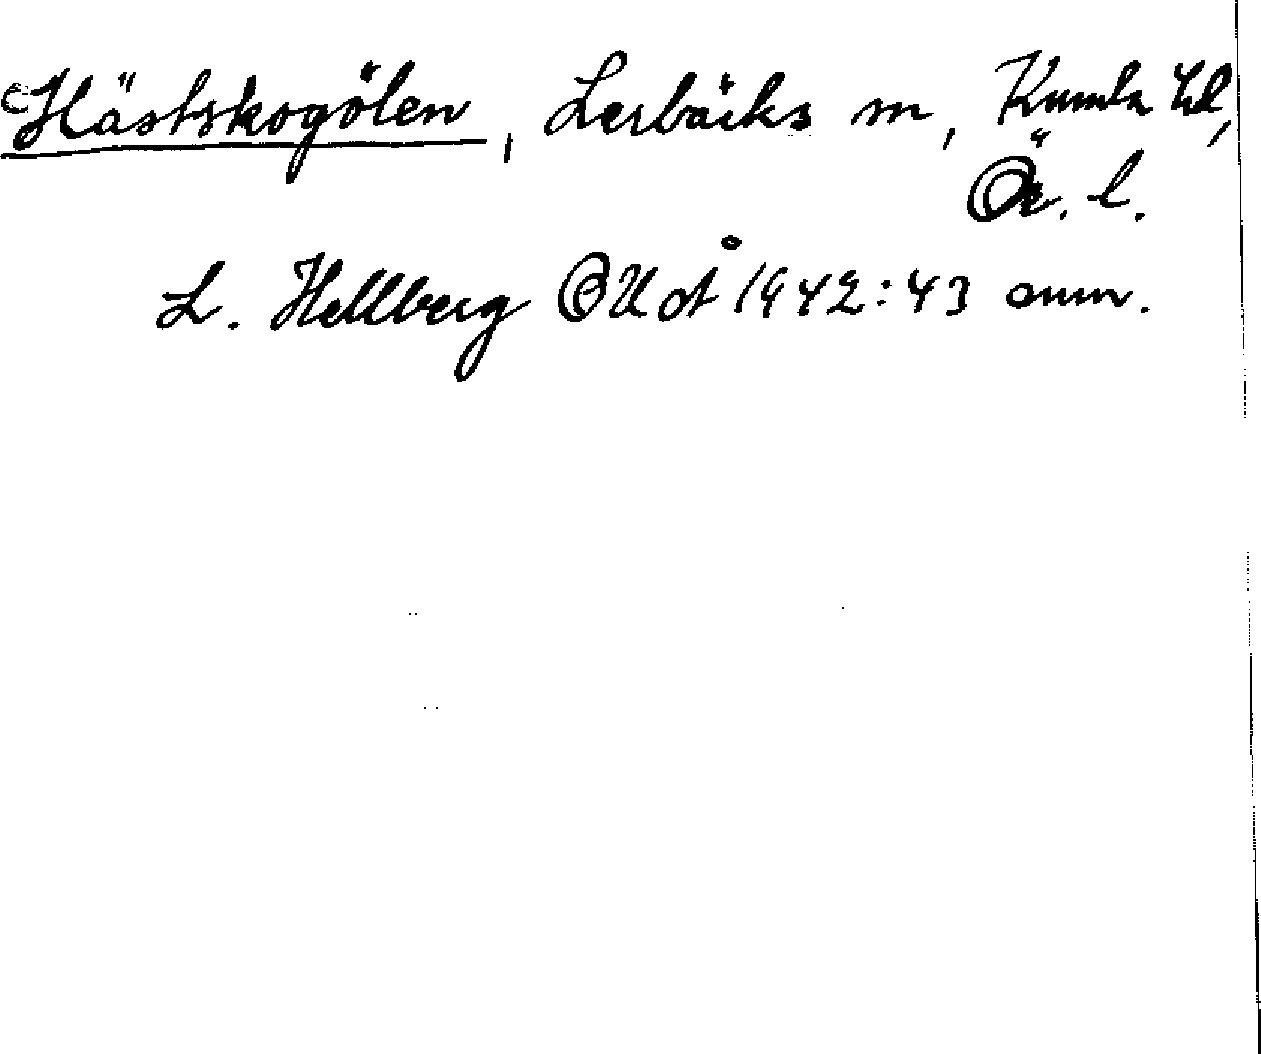 Hästskogölen, Lerbäcks sn, Kumla hd,
Ör. l.
L. Hellberg OUÅ 1942:43 anm.